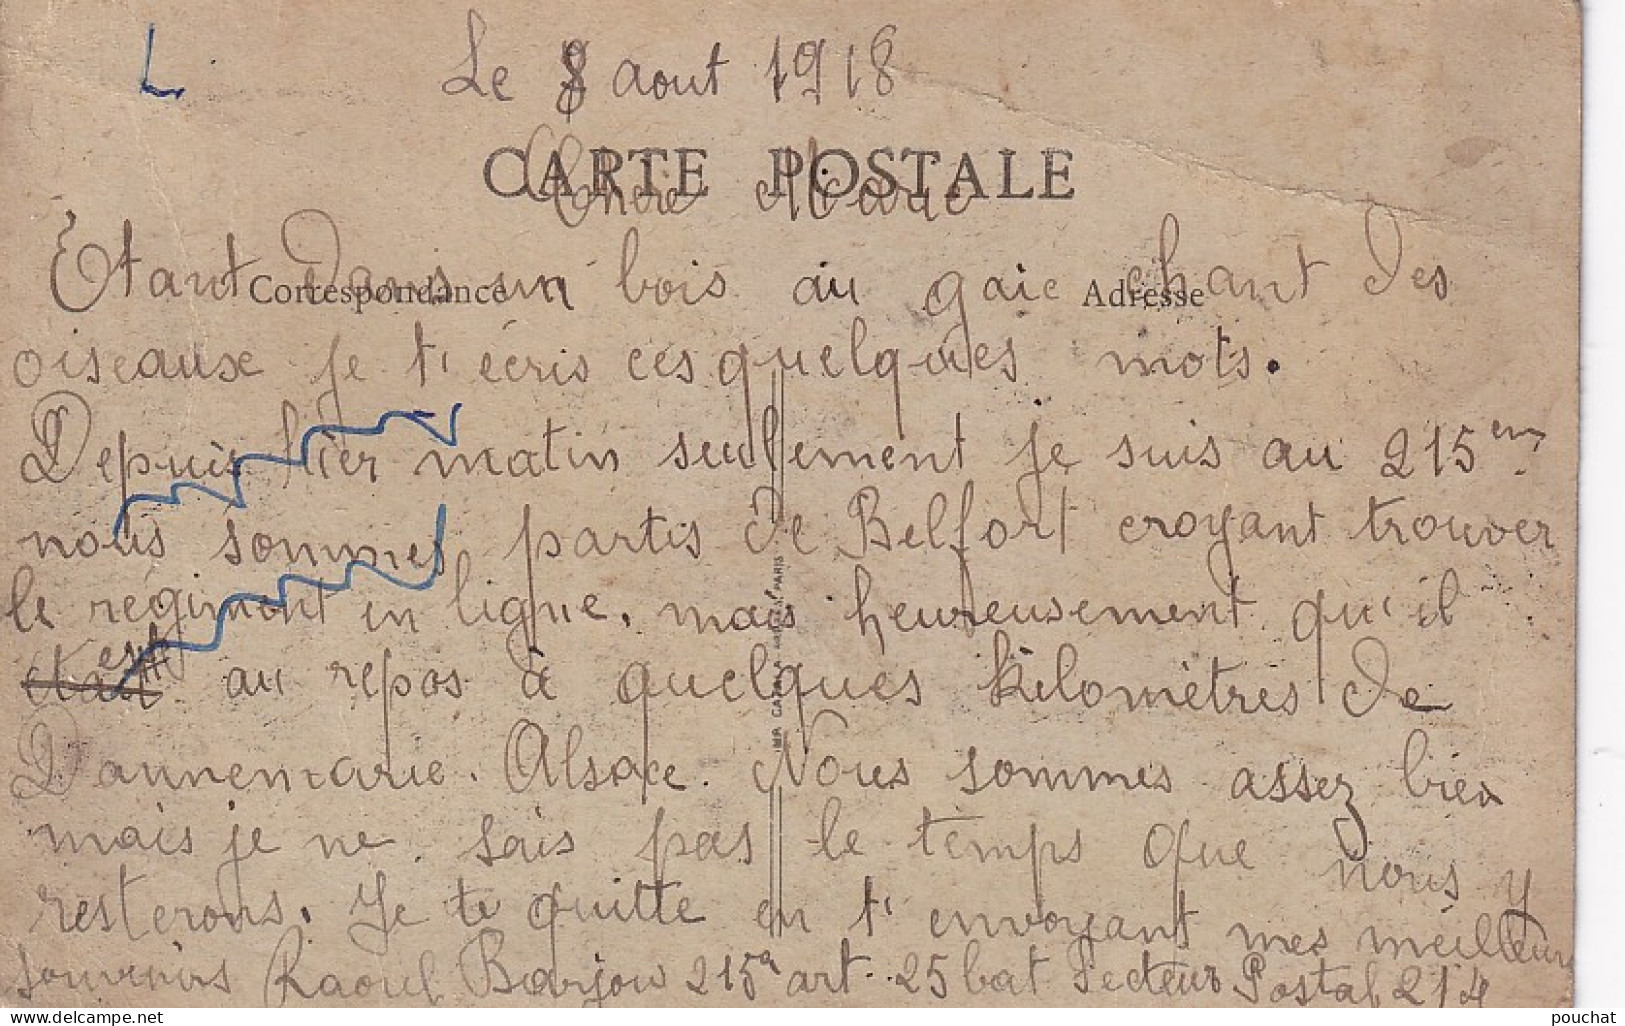 Le 8 aout 1918
CARTE POSTALE
Chère Marie
Etant dans un bois au gaie chant des
Correspondance
Adresse
oiseaux je t'écris ces quelques mots.
Depuis hier matin seullement je suis au 215em
nous sommes partis de Belfort croyant trouver
le regiment en ligne. mais heureusement qu'il
est au repos à quelques kilomètres de
Dannemarie. Alsace. Nous sommes assez bien
mais je ne sais pas le temps que nous y
resterons. Je te quitte en t'envoyant mes meilleurs
souvenirs Raoul 215e art. 25 bat Secteur Postal 214
IMP. PARIS
pouchat